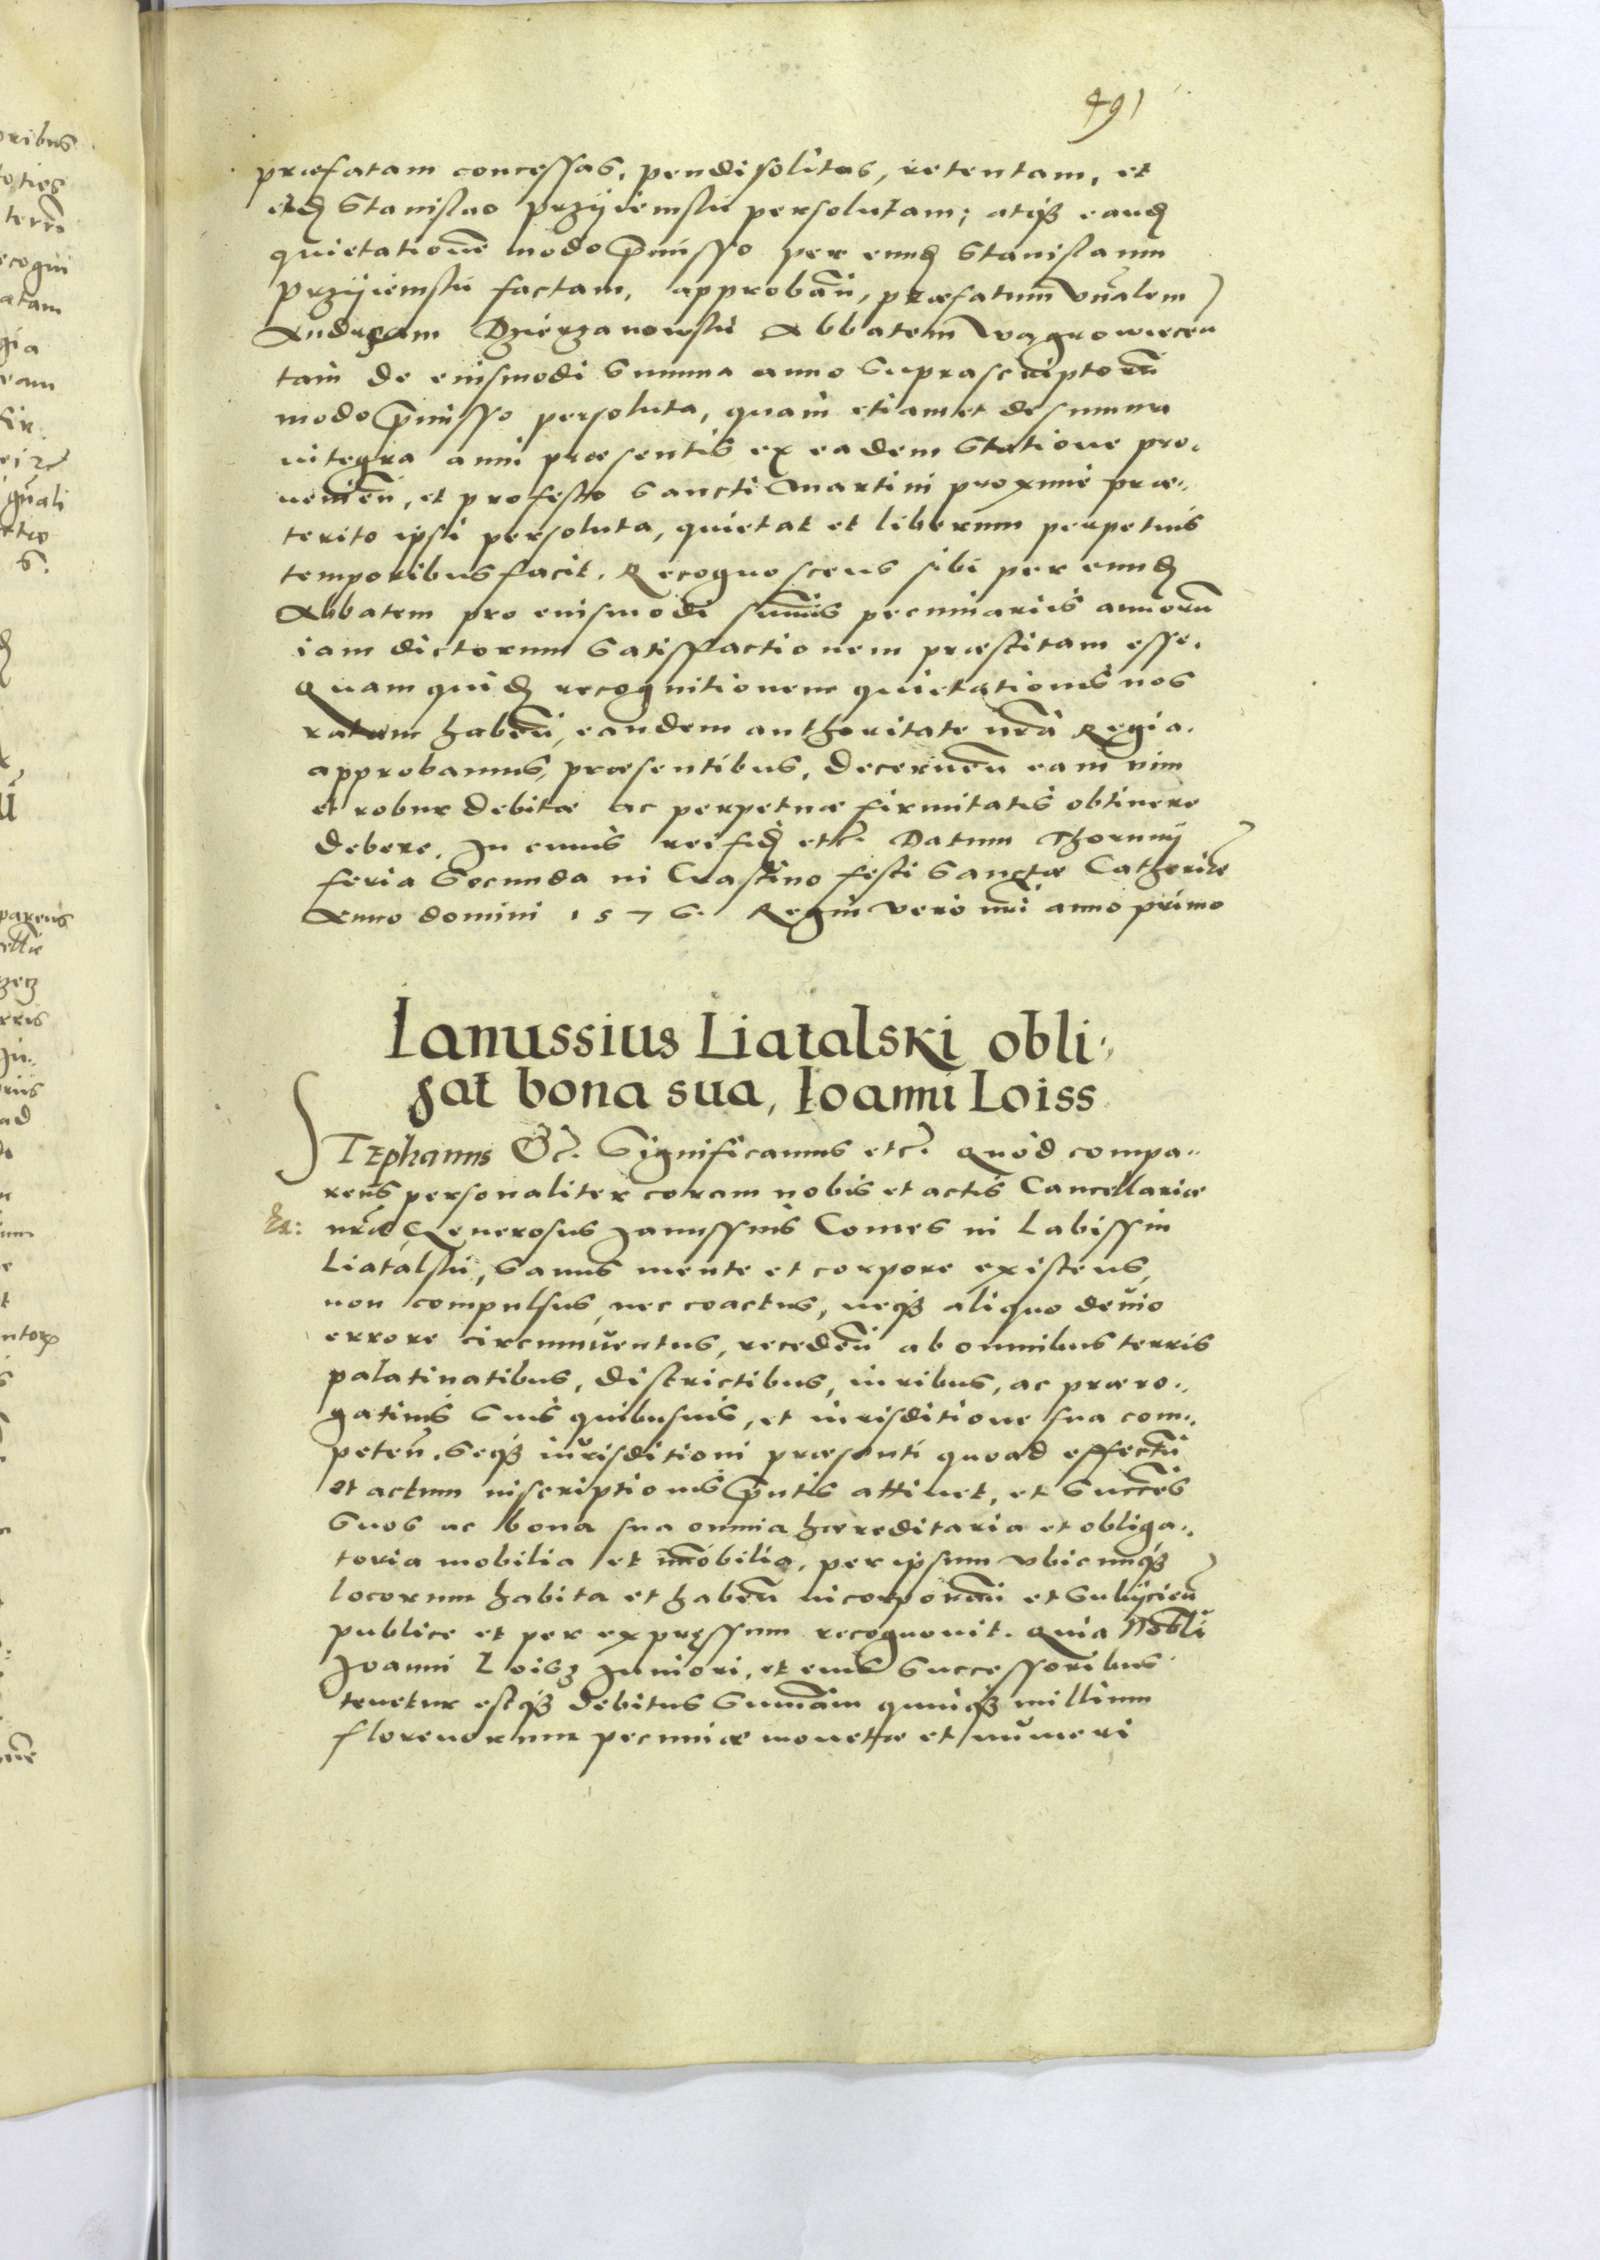 491
præfatam concessas, pendi solitas, retentam, et
eid Stanislao Przÿiemski persolutam; atqȝ eand
quietationē modo p̄misso per eund Stanislaum
Przÿiemski factam, approbān, præfatum vn̄alem
Andream Dzierzanowski Abbatem Vagrowiecen
tam de eiusmodi summa anno suprascriptorū
modo p̄misso persoluta, quam etiam et de summa
integra anni præsentis ex eadem statione pro-
venien̄, et pro festo Sancti Martini proxime præ-
terito ipsi persoluta, quietat et liberum perpetuis
temporibus facit. Recognoscens sibi per eund
Abbatem pro eiusmodi sum̄is pecuniariis annorū
iam dictorum satisffactionem præstitam esse.
Quam quid recognitionem quietationis nos
ratam haben̄, eandem authoritate nrā Regia
approbamus, præsentibus, decernen̄ eam vim
et robur debitæ ac perpetuæ firmitatis obtinere
debere. In cuius rei fid etc. Datum Thorunÿ
feria Secunda in Crastino festi Sanctæ Catherinē
Anno domini 1576. Regni vero nri anno primo
Ianussius Liatalski obli-
gat bona sua, Ioanni Loiss
STephanus &c. Significamus etc. Quod compa-
rens personaliter coram nobis et actis Cancellariæ
nr̄æ Generosus Janussius Comes in Labissin
Liatalski, sanus mente et corpore existens,
non compulsus, nec coactus, neqȝ aliquo devio
errore circumventus, receden̄ ab omnibus terris
palatinatibus, districtibus, iuribus, ac præro-
gativis suis quibusvis, et iurisditione sua com-
peten̄, seqȝ iurisditioni præsenti quoad effectū
et actum inscriptionis p̄ntis attinet, et succes̄
suos ac bona sua omnia hæreditaria et obliga-
toria mobilia et im̄obilia, per ipsum vbicunqȝ
locorum habita et haben̄ incorporān et subijcien̄
publice et per expręssum recognovit. Quia Nobli
Joanni Loisz Juniori, et eius successoribus
tenetur estqȝ debitus sum̄am quinqȝ millium
florenorum pecuniæ monettæ et numeri